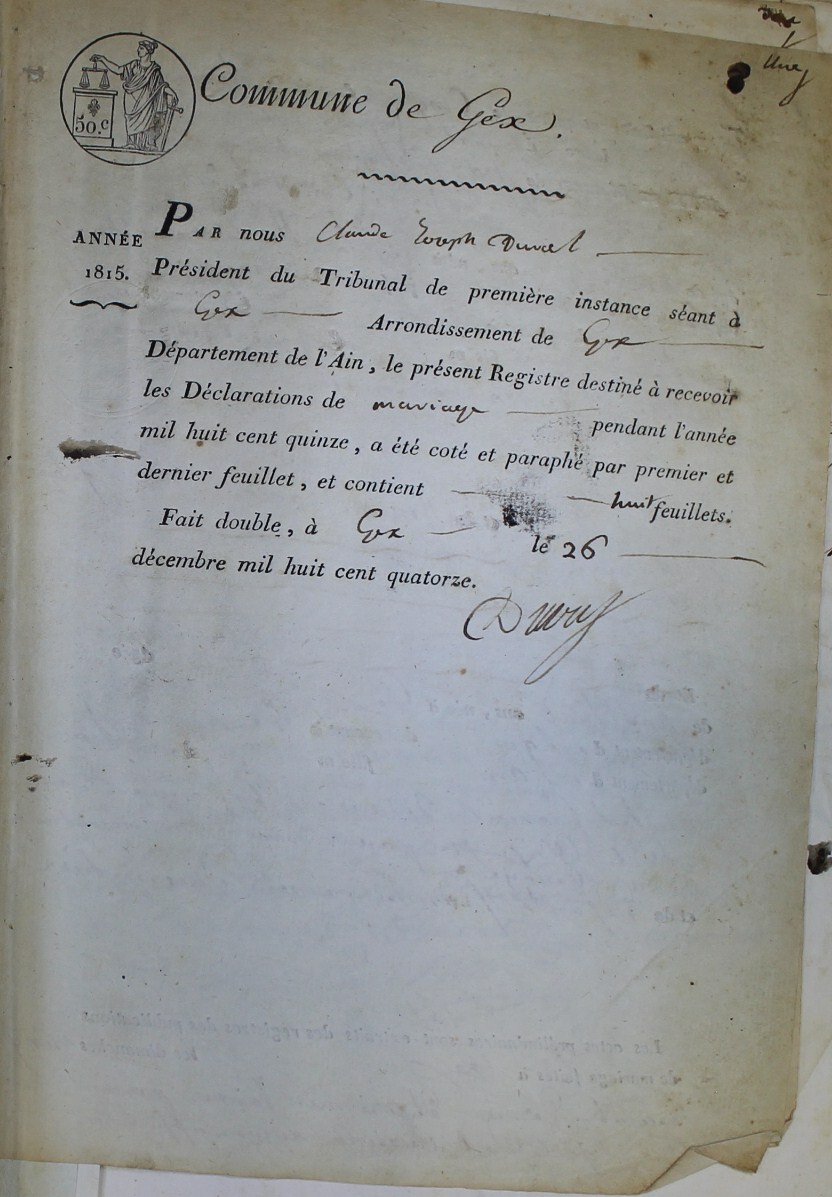 50.c
Commune de Gex.
ANNÉE
1815.
PAR nous Claude Joseph Duval
Président du Tribunal de première instance séant à
Gex Arrondissement de Gex
Département de l'Ain, le présent Registre destiné à recevoir
les Déclarations de mariage pendant l'année
mil huit cent quinze, a été coté et paraphé par premier et
dernier feuillet, et contient huit feuillets.
Fait double, à Gex le 26
décembre mil huit cent quatorze.